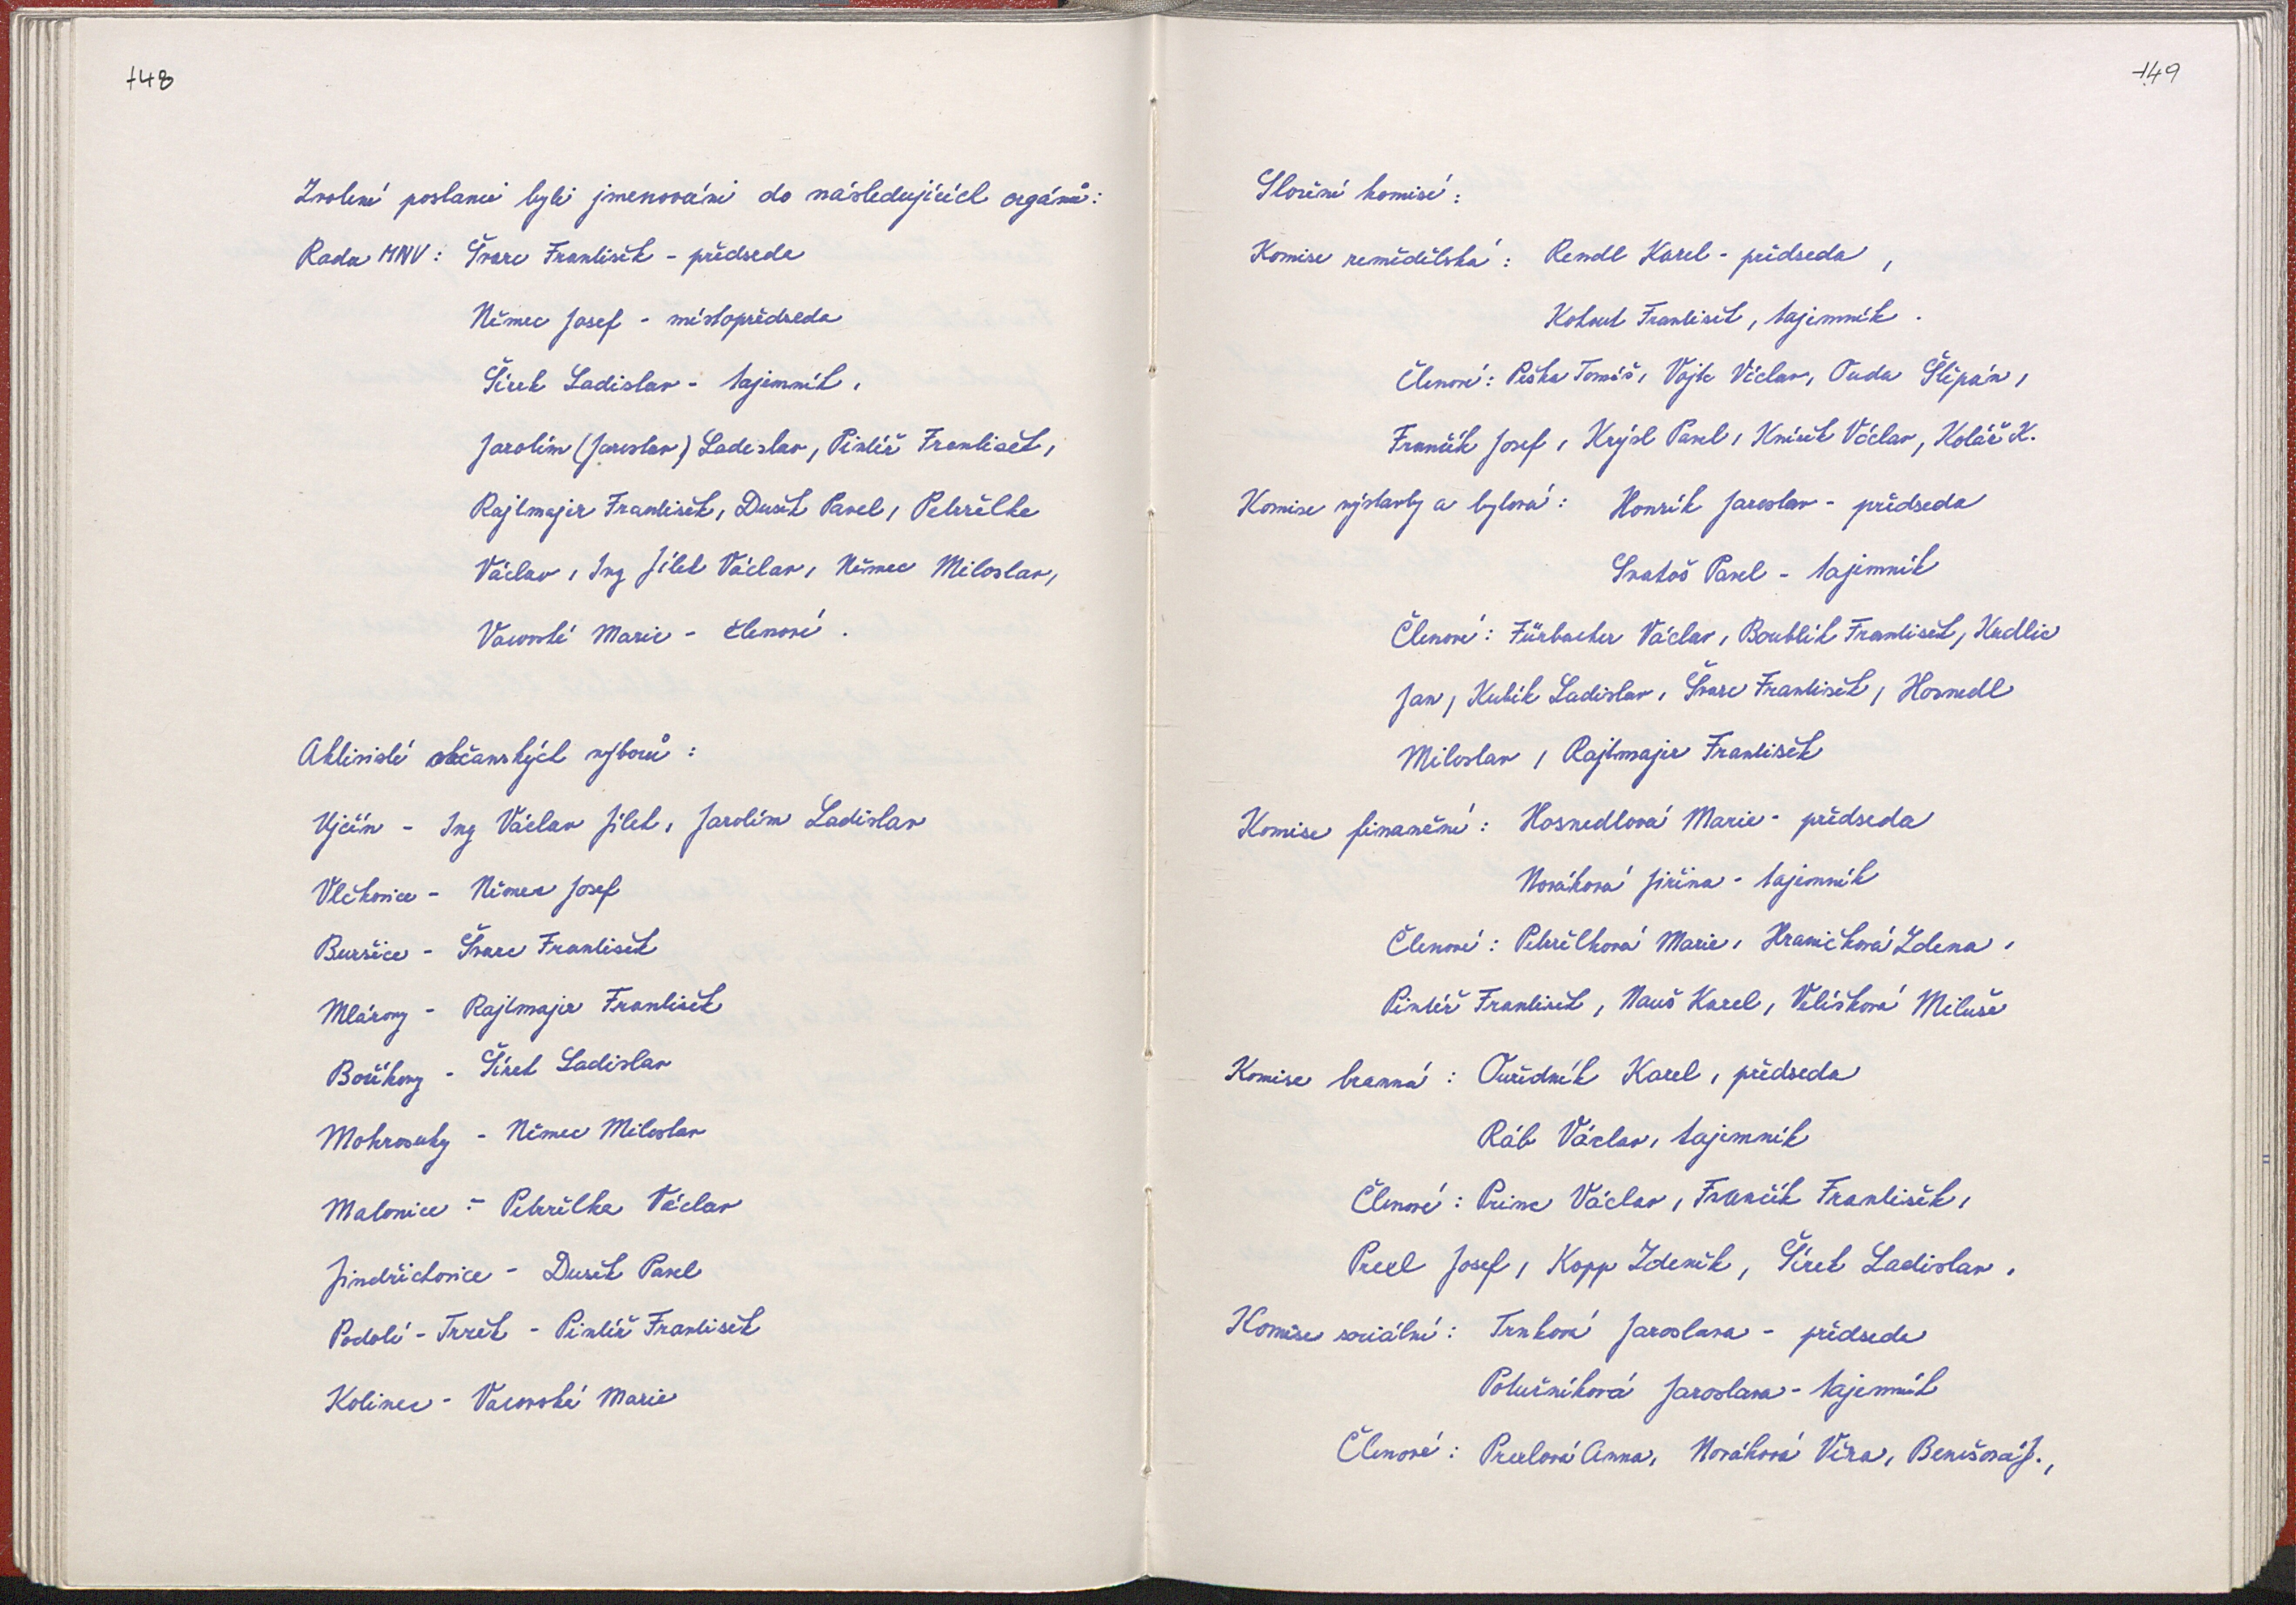 148
Zvolení poslanci byli jmenováni do následujících orgánů:
Rada MNV: Švarc František - předseda
Němec Josef - místopředseda
Šírek Ladislav - tajemník,
Jarolím (Jaroslav) Ladislav, Pintíř František,
Rajtmajer František, Dušek Pavel, Petrželka
Václav, Ing Jílek Václav, Němec Miloslav,
Vacovská Marie - členové.
Aktivisté občanských výborů:
Ujčín - Ing Václav Jílek, Jarolím Ladislav
Vlčkovice - Němec Josef
Buršice - Švarc František
Mlázovy - Rajtmajer František
Boříkovy - Šírek Ladislav
Mokrosuky - Němec Miloslav
Malonice - Petrželka Václav
Jindřichovice - Dušek Pavel
Podolí - Tržek - Pintíř František
Kolinec - Vacovská Marie
149
Složení komisí:
Komise zemědělská: Rendl Karel - předseda,
Kohout František, tajemník.
Členové: Peška Tomáš, Vojta Václav, Ouda Štěpán,
Frančík Josef, Krýsl Pavel, Knížek Václav, Kolář K.
Komise výstavby a bytová: Honzík Jaroslav - předseda
Svatoš Pavel - tajemník
Členové: Fürbacher Václav, Boublík František, Kudlic
Jan, Kubík Ladislav, Švarc František, Hosnedl
Miloslav, Rajtmajer František
Komise finanční: Hosnedlová Marie - předseda
Nováková Jiřina - tajemník
Členové: Petrželková Marie, Hraničková Zdena,
Pintíř František, Nauš Karel, Velíšková Miluše
Komise branná: Ouředník Karel, předseda
Ráb Václav, tajemník
Členové: Princ Václav, Frančík František,
Prexl Josef, Kopp Zdeněk, Šírek Ladislav,
Komise sociální: Trnková Jaroslava - předseda
Potužníková Jaroslava - tajemník
Členové: Prexlová Anna, Nováková Věra, Benešová J.,